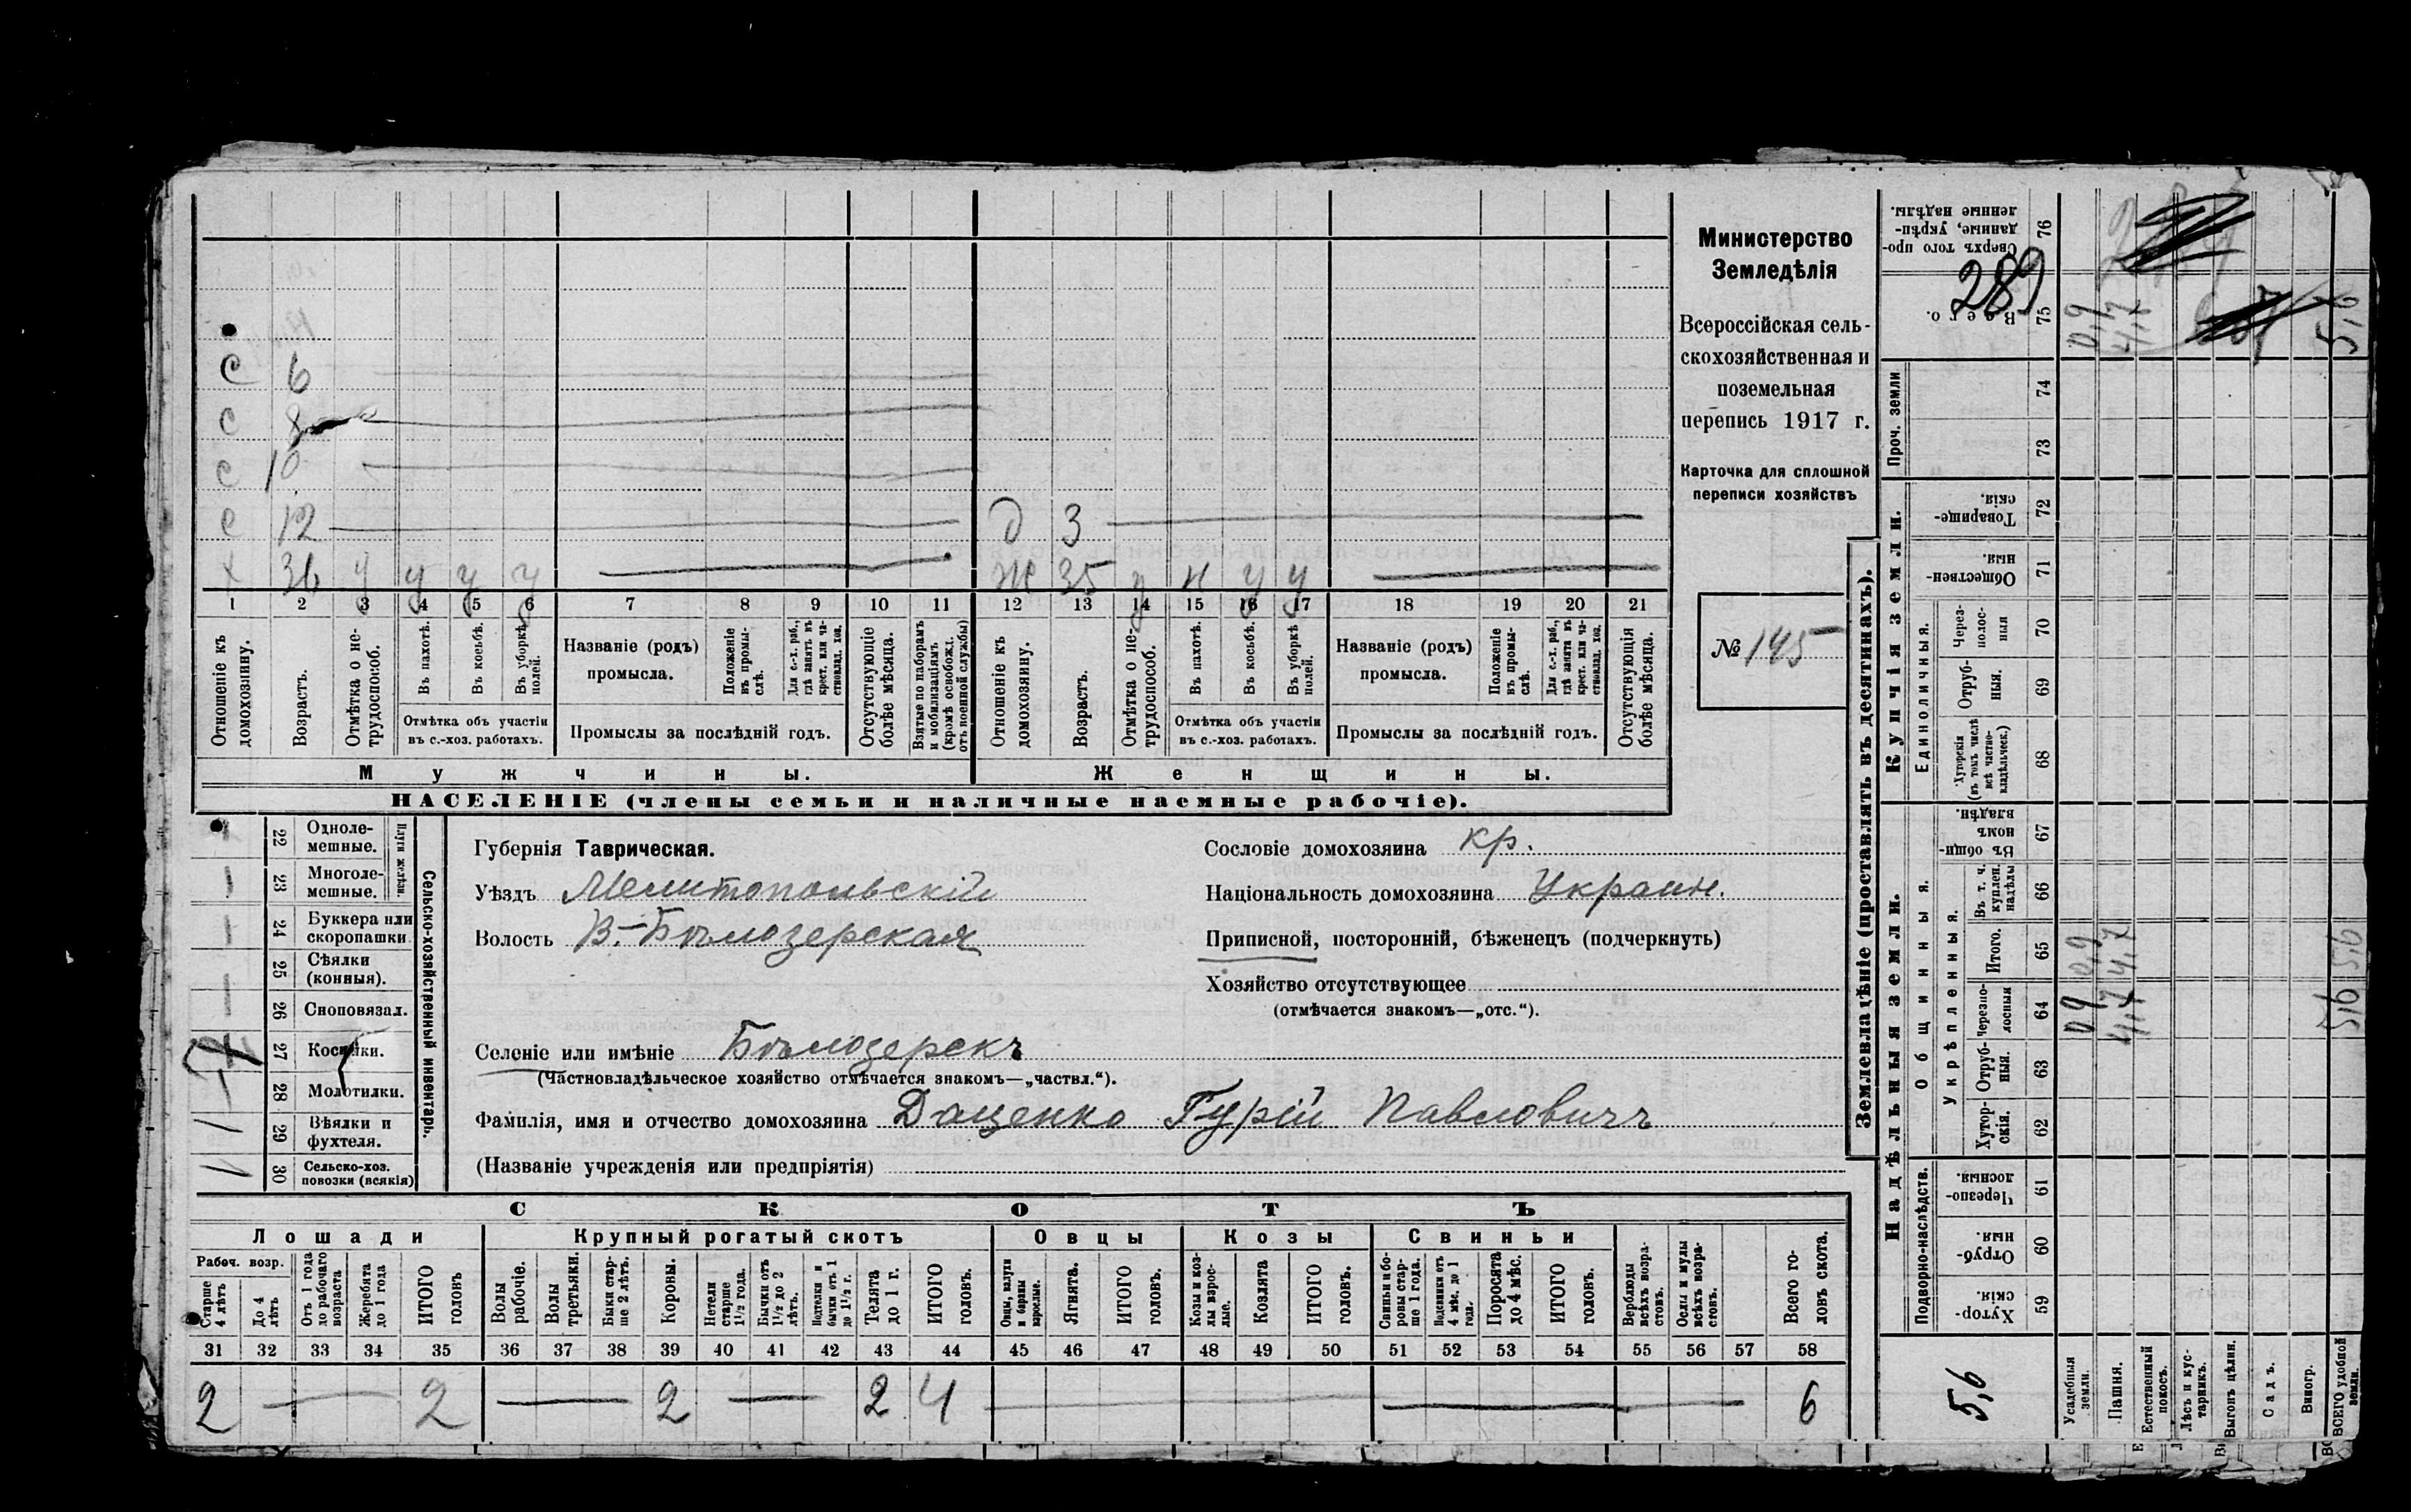 Министерство
Земледѣлія
Всероссійская сель-
скохозяйственная и
поземельная
перепись 1917 г.
Карточка для сплошной
переписи хозяйствъ
№ 145
289
с 6
с 8
с 10
с 12 д 3
х 36 у у у у ж 35 у н у у
1 2 3 4 5 6 7 8 9 10 11 12 13 14 15 16 17 18 19 20 21
Отношеніе къ домохозяину.
Возрастъ.
Отмѣтка о не-трудоспособ.
Въ пахотѣ.
Въ косьбѣ.
Въ уборкѣ полей.
Отмѣтка объ участіи
въ с.-хоз. работахъ.
Названіе (родъ)
промысла.
Положеніе въ промы-слѣ.
Для с.-х. раб., гдѣ занятъ въ крест. или ча-стновлад. хоз.
Промыслы за послѣдній годъ.
Отсутствующіе болѣе мѣсяца.
Взятые по наборамъ и мобилизаціямъ (кромѣ освобожд. отъ военной службы)
Отношеніе къ домохозяину.
Возрастъ.
Отмѣтка о не-трудоспособ.
Въ пахотѣ.
Въ косьбѣ.
Въ уборкѣ полей.
Отмѣтка объ участіи
въ с.-хоз. работахъ.
Названіе (родъ)
промысла.
Положеніе въ промы-слѣ.
Для с.-х. раб., гдѣ занята въ крест. или ча-стновлад. хоз.
Промыслы за послѣдній годъ.
Отсутствующія болѣе мѣсяца.
Мужчины. Женщины.
НАСЕЛЕНІЕ (члены семьи и наличные наемные рабочіе).
Сельско-хозяйственный инвентарь.
Плуги желѣзн.
22 Одноле-мешные.
23 Многоле-мешные. 1
24 Буккера или скоропашки 1
25 Сѣялки (конныя).
26 Сноповязал.
27 Косилки.
28 Молотилки.
29 Вѣялки и фухтеля. 1
30 Сельско-хоз. повозки (всякія)
Губернія Таврическая.
Уѣздъ Мелитопольскій
Волость В.-Бѣлозерская
Селеніе или имѣніе Бѣлозерскъ
(Частновладѣльческое хозяйство отмѣчается знакомъ—„частвл.“).
Фамилія, имя и отчество домохозяина Даценко Гурій Павловичъ
(Названіе учрежденія или предпріятія)
Сословіе домохозяина кр.
Національность домохозяина Украин.
Приписной, посторонній, бѣженецъ (подчеркнуть)
Хозяйство отсутствующее
(отмѣчается знакомъ—„отс.“).
СКОТЪ
Лошади Крупный рогатый скотъ Овцы Козы Свиньи
Рабоч. возр.
Старше 4 лѣтъ
До 4 лѣтъ
Отъ 1 года до рабочаго возраста
Жеребята до 1 года
ИТОГО головъ
Волы рабочіе.
Волы третьяки.
Быки стар-ше 2 лѣтъ.
Коровы.
Нетели старше 1½ года.
Бычки отъ 1½ до 2 лѣтъ.
Подтелки и бычки отъ 1 до 1½ г.
Телята до 1 г.
ИТОГО головъ.
Овцы, валухи и бараны взрослые.
Ягнята.
ИТОГО головъ.
Козы и коз-лы взрос-лые.
Козлята
ИТОГО головъ.
Свиньи и бо-ровы стар-ше 1 года.
Подсвинки отъ 4 мѣс. до 1 года.
Поросята до 4 мѣс.
ИТОГО головъ.
Верблюды всѣхъ возра-стовъ.
Ослы и мулы всѣхъ возра-стовъ.
Всего го-ловъ скота.
31 32 33 34 35 36 37 38 39 40 41 42 43 44 45 46 47 48 49 50 51 52 53 54 55 56 57 58
2 2 2 2 4 6
Землевладѣніе (проставлять въ десятинахъ).
Надѣльныя земли. Купчія земли. Проч. земли
Подворно-наслѣдств.
Общинныя.
Укрѣпленныя.
Единоличныя.
Хутор-скія. 59
Отруб-ныя. 60
Черезпо-лосныя. 61
Хутор-скія. 62
Отруб-ныя. 63
Черезпо-лосныя 64
Итого. 65
Въ т. ч. куплен. надѣлы 66
Въ общи-номъ владѣн. 67
Хуторскія (въ томъ числѣ всѣ частно-владѣльческ.) 68
Отруб-ныя. 69
Через-полос-ныя 70
Обществен-ныя. 71
Товарище-скія. 72
73
74
Всего. 75
Сверхъ того про-данные, укрѣп-ленные надѣлы. 76
5,6
Усадебныя земли. 0,9 0,9 0,9
Пашня. 4,7 4,7 4,7
Естественный покосъ.
Лѣсъ и кус-тарникъ.
Выгонъ цѣлин.
Садъ.
Виногр.
ВСЕГО удобной земли. 5,6 5,6 5,6